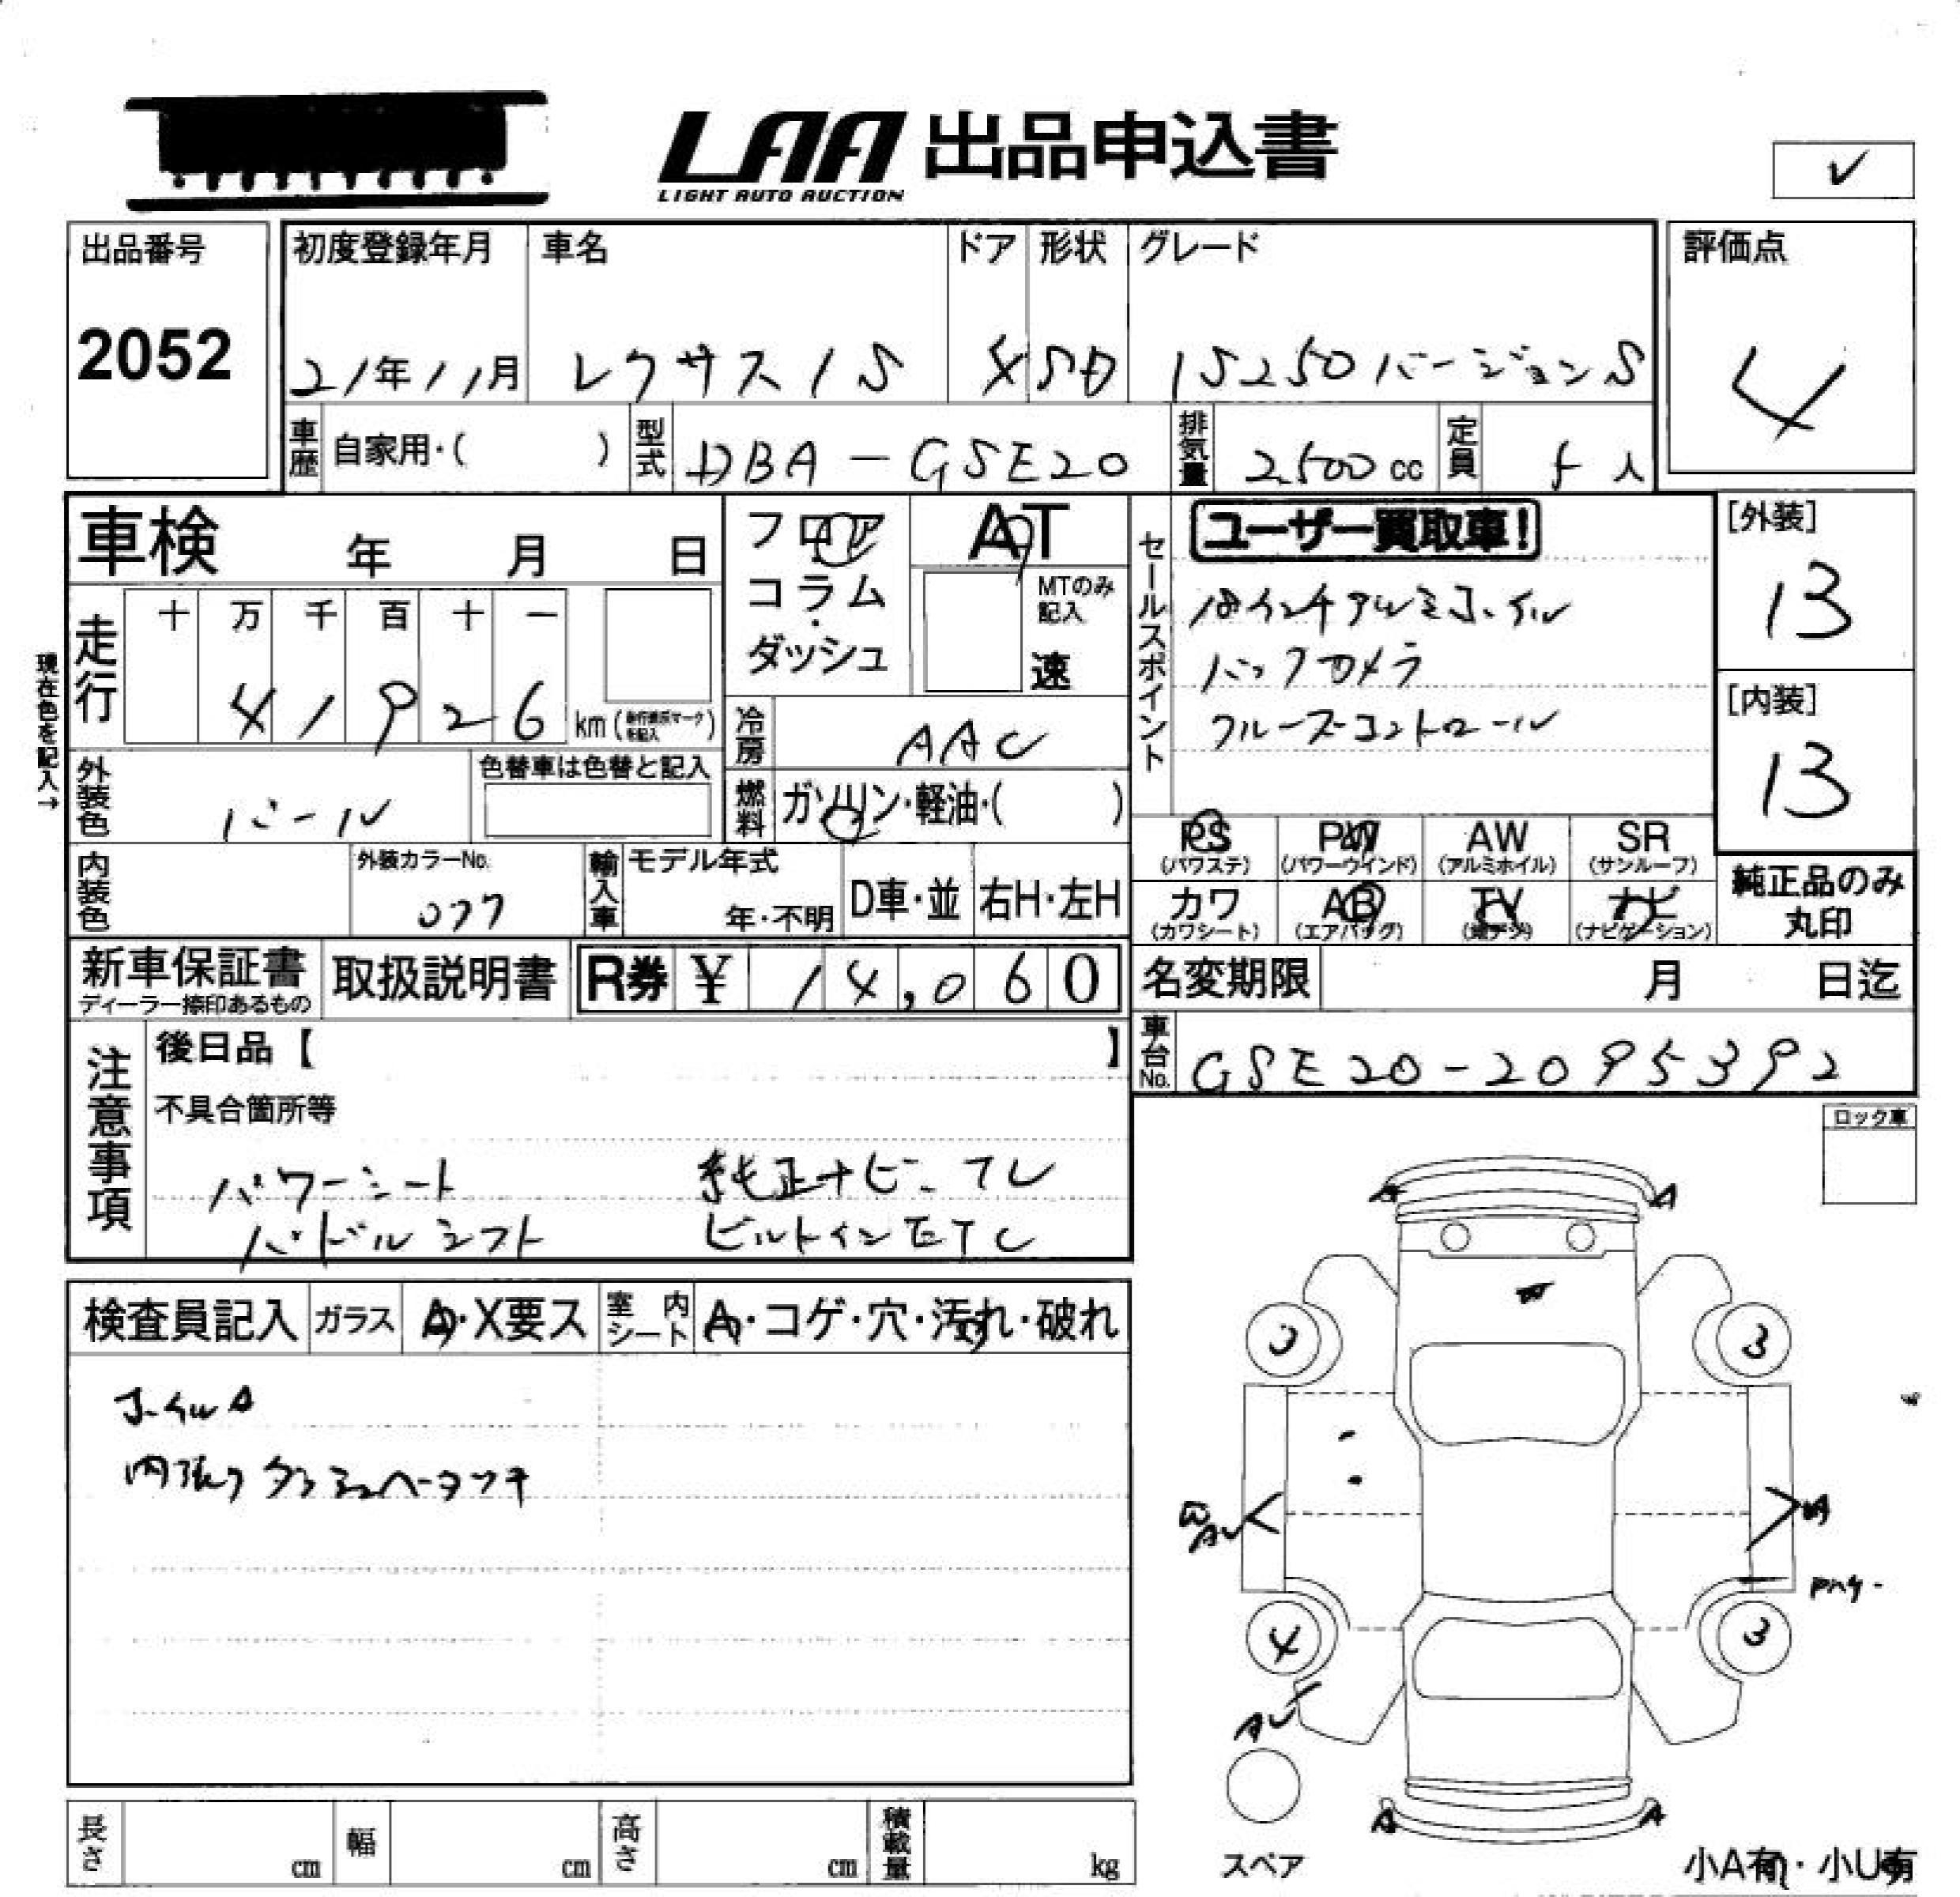 LAA 出品申込書
LIGHT AUTO AUCTION
✓
出品番号
2052
初度登録年月
21年11月
車名
レクサスIS
ドア
4
形状
SD
グレード
IS250バージョンS
評価点
4
車歴
自家用・( )
型式
DBA-GSE20
排気量
2,500cc
定員
5人
車検 年 月 日
フロア
コラム・
ダッシュ
AT
MTのみ
記入
速
セールスポイント
ユーザー買取車!
18インチアルミホイル
バックカメラ
クルーズコントロール
[外装]
13
[内装]
13
現在色を記入→
走行
十 万 千 百 十 一
4 1 9 2 6 km
冷房
AAC
燃料
ガソリン・軽油・( )
外装色
パール
色替車は色替と記入
内装色
外装カラーNo.
077
輸入車
モデル年式
年・不明
D車・並
右H・左H
PS
(パワステ)
PW
(パワーウインド)
AW
(アルミホイル)
SR
(サンルーフ)
カワ
(カワシート)
AB
(エアバッグ)
TV
(地デジ)
ナビ
(ナビゲーション)
純正品のみ
丸印
新車保証書
ディーラー捺印あるもの
取扱説明書
R券 ¥ 14,060
名変期限 月 日迄
車台No.
GSE20-2095392
注意事項
後日品【 】
不具合箇所等
パワーシート 純正ナビ・テレ
パドルシフト ビルトインETC
ロック車
検査員記入
ガラス
A・X要ス
室内シート
A・コゲ・穴・汚れ・破れ
ホイルA
内張り ダッシュベータツキ
A A
W
3 3
AU
A
4 3
AU
A A
スペア
小A有・小U有
長さ cm
幅 cm
高さ cm
積載量 kg